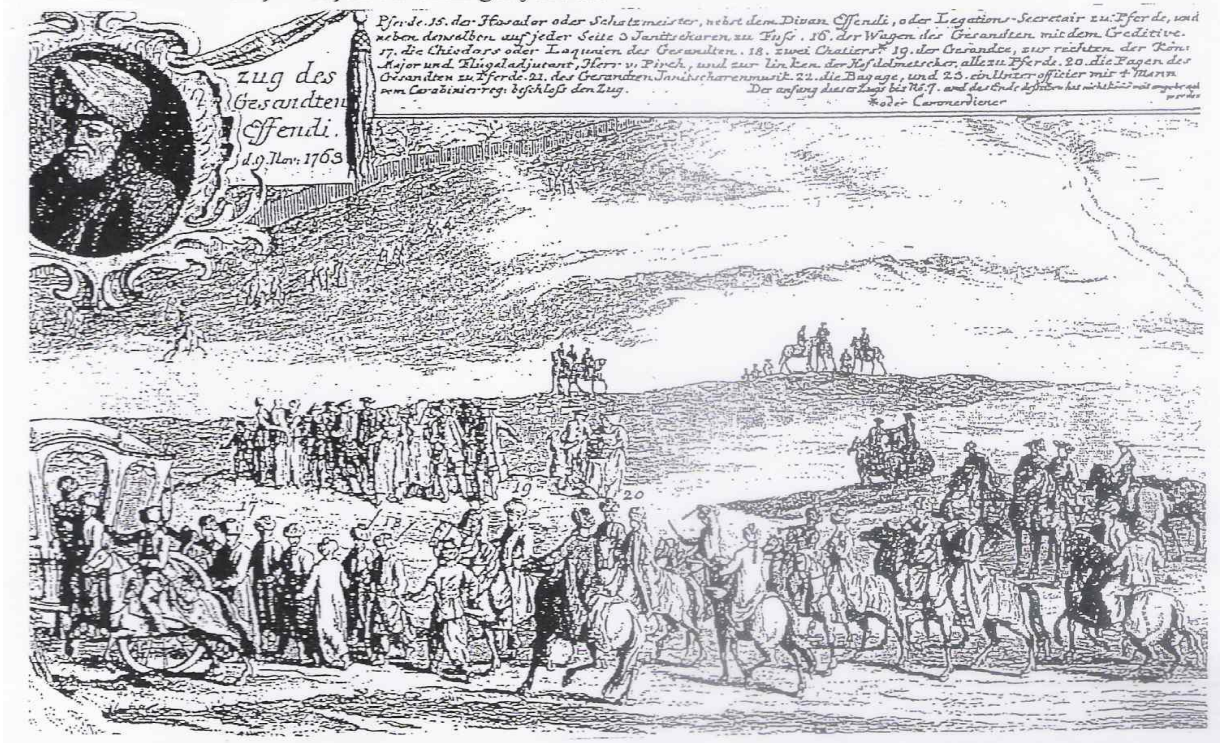 zug des
Gesandten
Effendi.
d. 9. Nov: 1763
Pferde. 15. der Hasador oder Schatzmeister, nebst dem Divan Effendi, oder Legations-Secretair zu Pferde, und
neben denselben auf jeder Seite 3 Janitscharen zu Fuss. 16. der Wagen des Gesandten mit dem Creditive.
17. die Chiodars oder Laquaien des Gesandten. 18. zwei Chatiers* 19. der Gesandte, zur rechten der Kön:
Major und Flügeladjutant, Herr v: Pirch, und zur linken der Hofdolmetscher, alle zu Pferde. 20. die Pagen des
Gesandten zu Pferde. 21. des Gesandten Janitscharenmusik. 22. die Bagage, und 23. ein Unterofficier mit 4 Mann
vom Carabinierreg: beschloss den Zug. Der anfang dieses Zugs bis No. 7. und das Ende desselben hat nicht
*oder
17
18
19
20